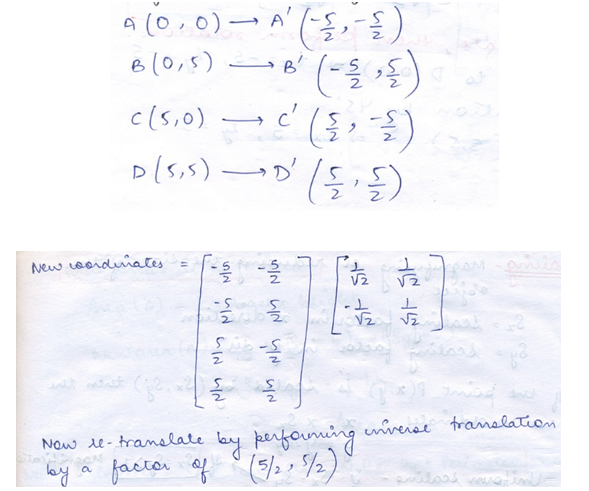 A (0, 0) → A' (-5/2, -5/2)
B (0, 5) → B' (-5/2, 5/2)
C (5, 0) → C' (5/2, -5/2)
D (5, 5) → D' (5/2, 5/2)
New coordinates = [-5/2 -5/2] [1/√2 1/√2]
[-5/2 5/2] [-1/√2 1/√2]
[5/2 -5/2]
[5/2 5/2]
Now re-translate by performing inverse translation
by a factor of (5/2, 5/2)